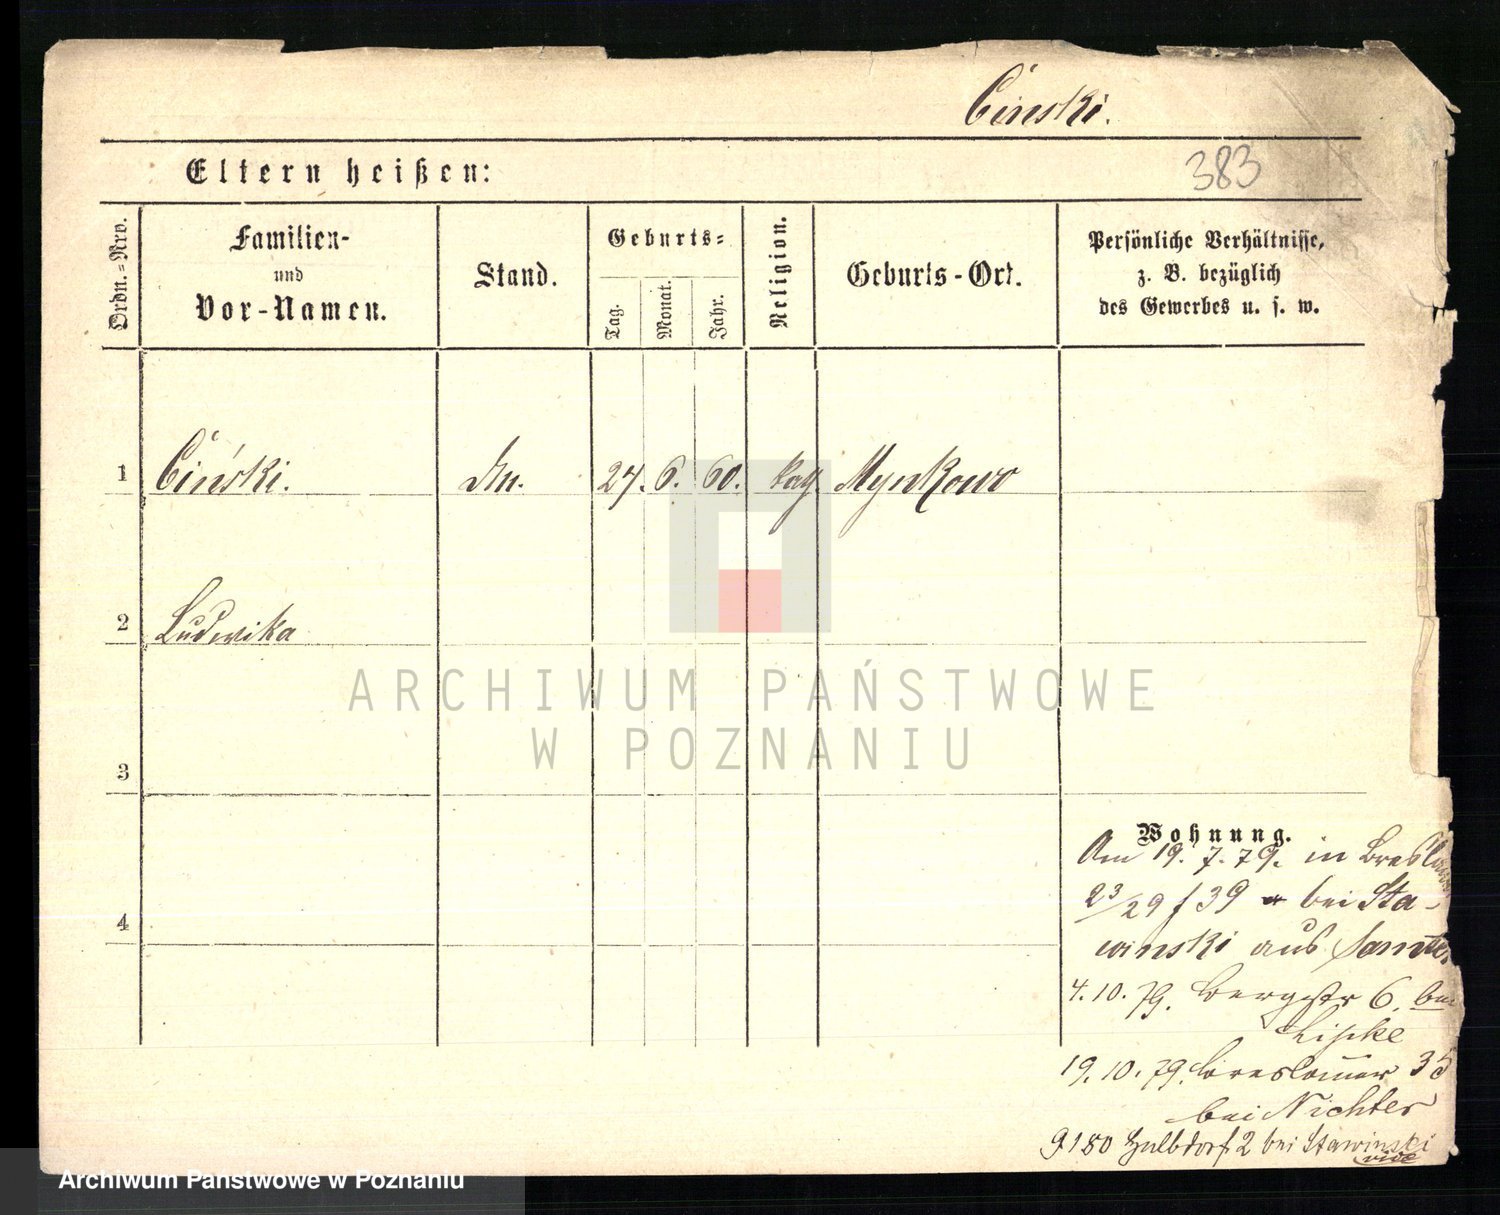 Cinski.
Eltern heißen:
383
Ordn.=Nro.
Familien-
und
Vor-Namen.
Stand.
Geburts=
Tag.
Monat.
Jahr.
Religion.
Geburts-Ort.
Persönliche Verhältnisse,
z. B. bezüglich
des Gewerbes u. s. w.
1
Ciński.
27. 6. 60.
kath.
Mynkowo
2
Ludwika
ARCHIWUM PAŃSTWOWE
W POZNANIU
3
Wohnung.
Am 19. 7. 79. in Breslau
23/29 f 39 bei Sta-
4
winski aus Samter
4. 10. 79. Bergstr 6. bei
Lipke
19. 10. 79. Breslauer 35
bei Richter
9 1 80 Halbdorf. 2 bei Stawinski
Archiwum Państwowe w Poznaniu